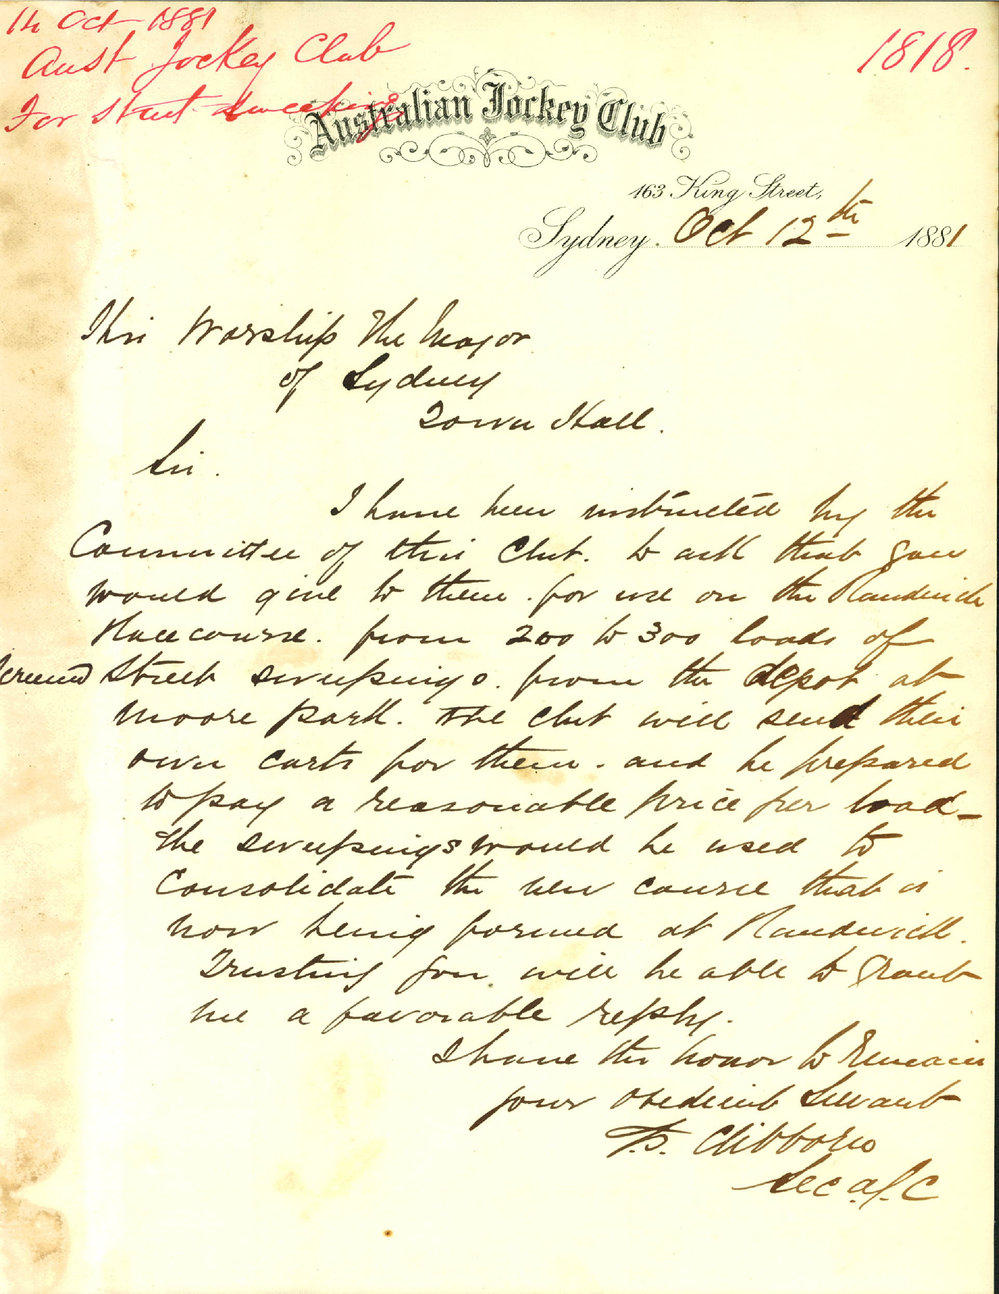 14 Oct 1881
Aust Jockey Club
For Street Sweepings
1818.
Australian Jockey Club
163 King Street,
Sydney. Oct 12th 1881
His Worship The Mayor
of Sydney
Town Hall.
Sir.
I have been instructed by the
Committee of this Club. to ask that you
would give to them. for use on the Randwick
Racecourse. from 200 to 300 loads of
Street sweepings. from the depot at
Moore Park. The club will send their
own carts for them. and be prepared
to pay a reasonable price per load_
The sweepings would be used to
Consolidate the new course that is
now being formed at Randwick.
Trusting you will be able to Grant
me a favorable reply.
I have the honor to Remain
your obedient Servant
T.S. Clibborn
Sec A.J.C